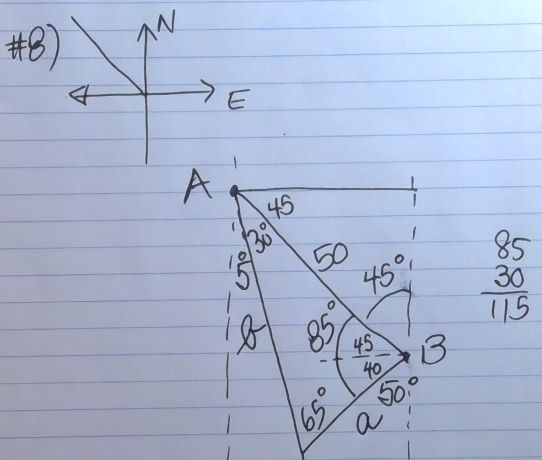 #8)
N
E
A
45
30°
5°
50
45°
85
30
115
b
85°
45
40
B
50°
65°
a